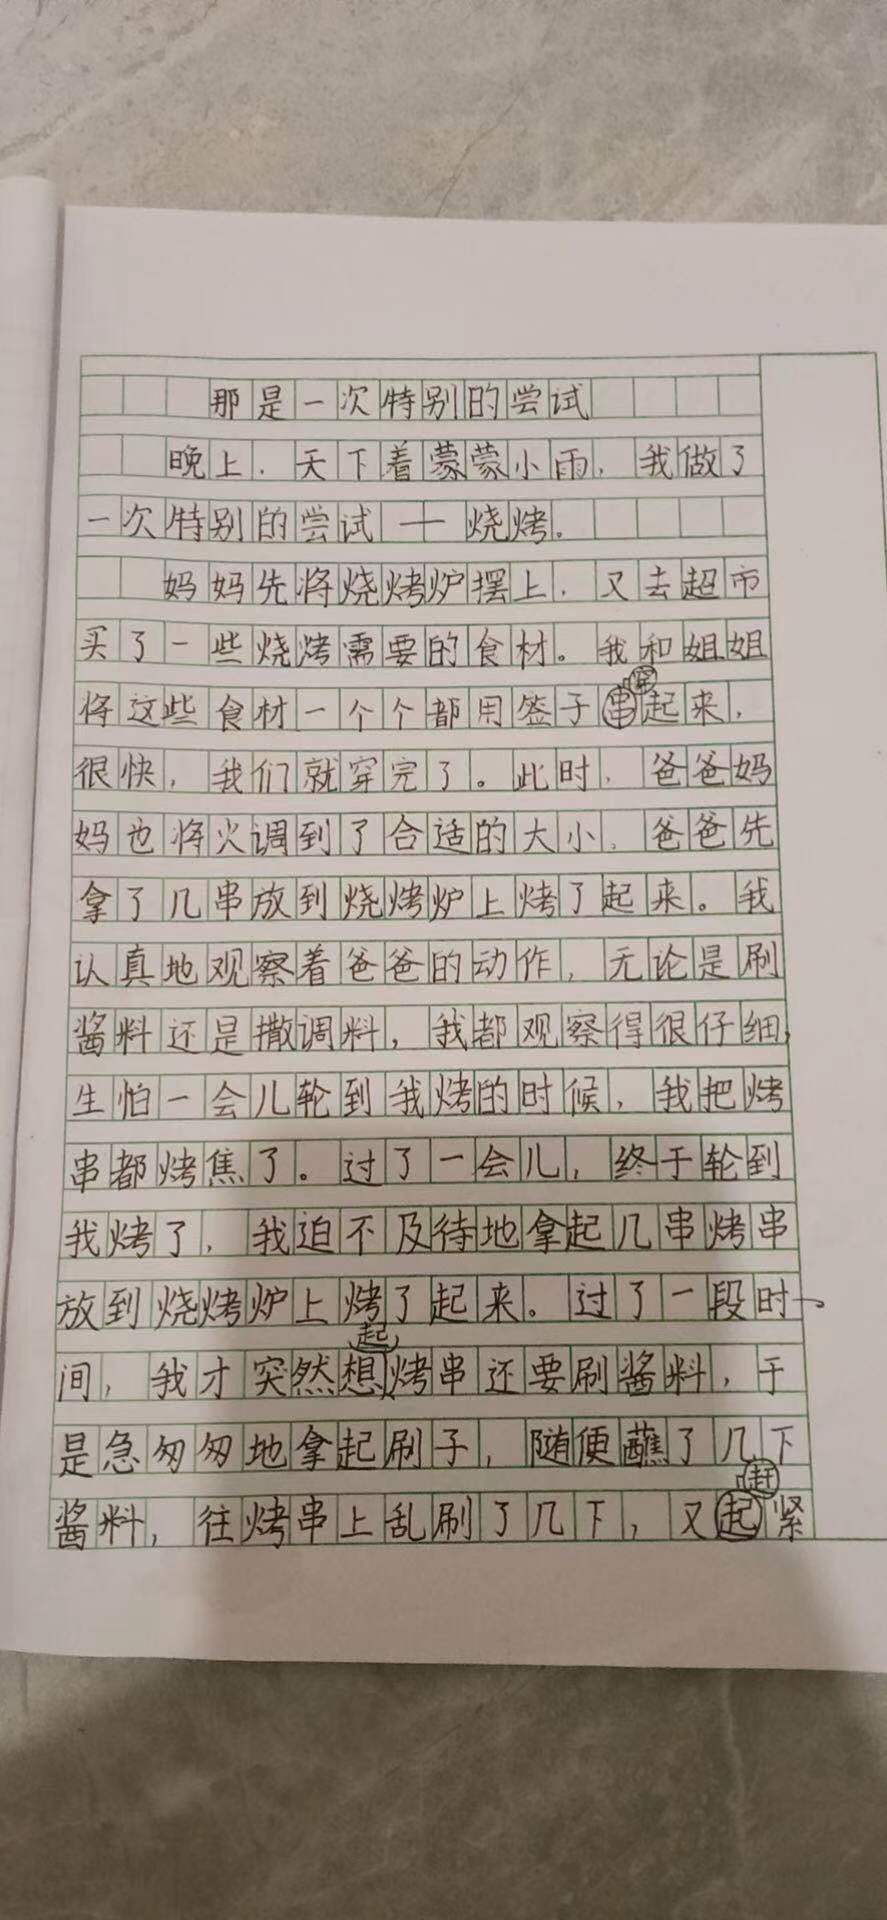 那是一次特别的尝试
晚上，天下着蒙蒙小雨，我做了
一次特别的尝试——烧烤。
妈妈先将烧烤炉摆上，又去超市
买了一些烧烤需要的食材。我和姐姐
将这些食材一个个都用签子穿起来，
很快，我们就穿完了。此时，爸爸妈
妈也将火调到了合适的大小，爸爸先
拿了几串放到烧烤炉上烤了起来。我
认真地观察着爸爸的动作，无论是刷
酱料还是撒调料，我都观察得很仔细，
生怕一会儿轮到我烤的时候，我把烤
串都烤焦了。过了一会儿，终于轮到
我烤了，我迫不及待地拿起几串烤串
放到烧烤炉上烤了起来。过了一段时
间，我才突然想起烤串还要刷酱料，于
是急匆匆地拿起刷子，随便蘸了几下
酱料，往烤串上乱刷了几下，又赶紧